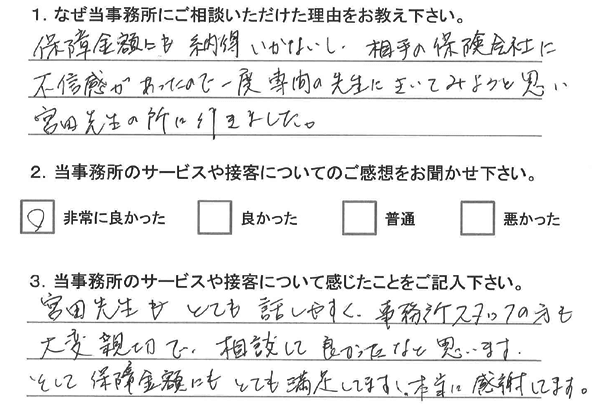 1. なぜ当事務所にご相談いただけた理由をお教え下さい。
保障金額にも納得いかないし、相手の保険会社に
不信感があったので一度専門の先生にきいてみようと思い
宮田先生の所に行きました。
2. 当事務所のサービスや接客についてのご感想をお聞かせ下さい。
○ 非常に良かった 良かった 普通 悪かった
3. 当事務所のサービスや接客について感じたことをご記入下さい。
宮田先生もとても話しやすく、事務所スタッフの方も
大変親切で、相談して良かったなと思います。
そして保障金額にもとても満足してますし、本当に感謝してます。